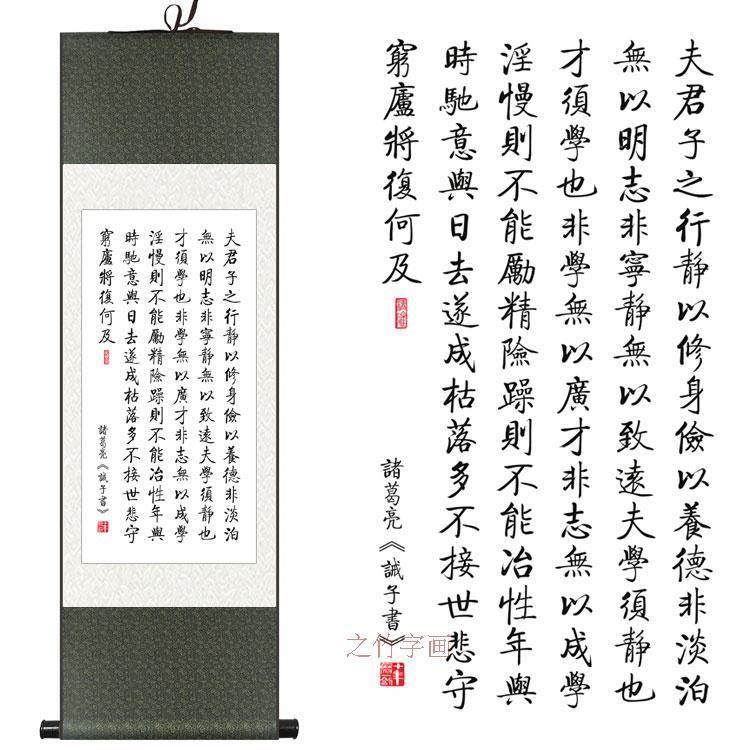 夫君子之行靜以修身儉以養德非淡泊
無以明志非寧靜無以致遠夫學須靜也
才須學也非學無以廣才非志無以成學
淫慢則不能勵精險躁則不能冶性年與
時馳意與日去遂成枯落多不接世悲守
窮廬將復何及
諸葛亮《誡子書》
夫君子之行靜以修身儉以養德非淡泊
無以明志非寧靜無以致遠夫學須靜也
才須學也非學無以廣才非志無以成學
淫慢則不能勵精險躁則不能冶性年與
時馳意與日去遂成枯落多不接世悲守
窮廬將復何及
諸葛亮《誡子書》
之竹字画